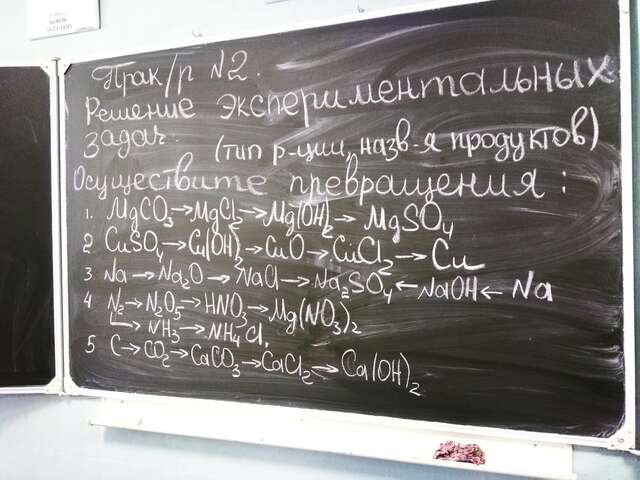 Прак/р №2.
Решение экспериментальных
задач. (тип р-ции, назв-я продуктов)
Осуществите превращения:
1. MgCO₃→MgCl₂→Mg(OH)₂→MgSO₄
2 CuSO₄→Cu(OH)₂→CuO→CuCl₂→Cu
3 Na→Na₂O→NaCl→Na₂SO₄←NaOH←Na
4 N₂→N₂O₅→HNO₃→Mg(NO₃)₂
↳NH₃→NH₄Cl,
5 C→CO₂→CaCO₃→CaCl₂→Ca(OH)₂